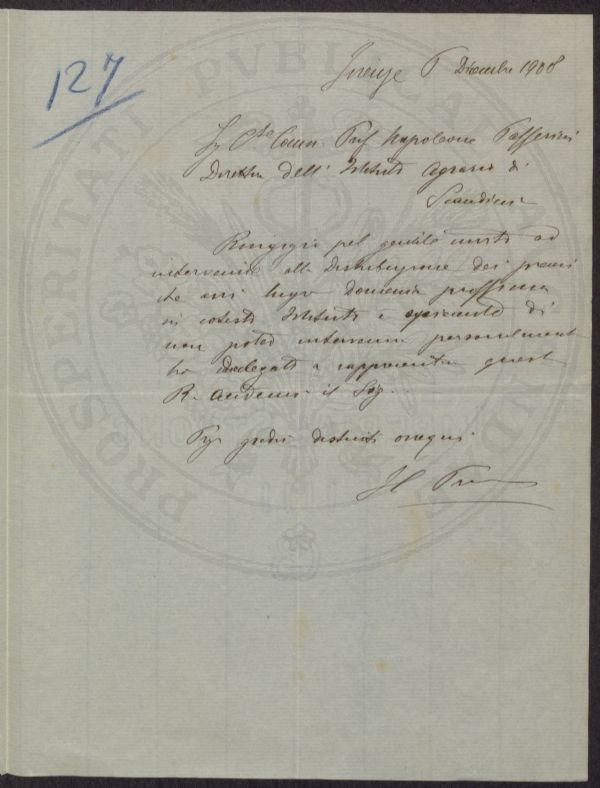 127
Firenze 5 Dicembre 1908
Sig. Cte Comm. Prof. Napoleone Passerini
Direttore dell' Istituto Agrario di
Scandicci
Ringrazio pel gentile invito ad
intervenire alla Distribuzione dei premi
che avrà luogo Domenica prossima
in cotesto Istituto e spiacente di
non poter intervenire personalmente
ho delegato a rappresentare questa
R. Accademia il Sig.
distinti ossequi
Il Pres
PROSPERITATI PVBLICAE